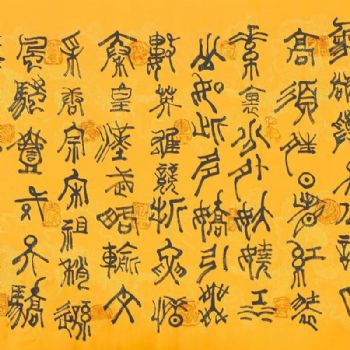 高須晴日看紅裝
素裹分外妖嬈江
山如此多嬌引無
數英雄競折腰惜
秦皇漢武略輸文
采唐宗宋祖稍遜
風騷壹代天驕